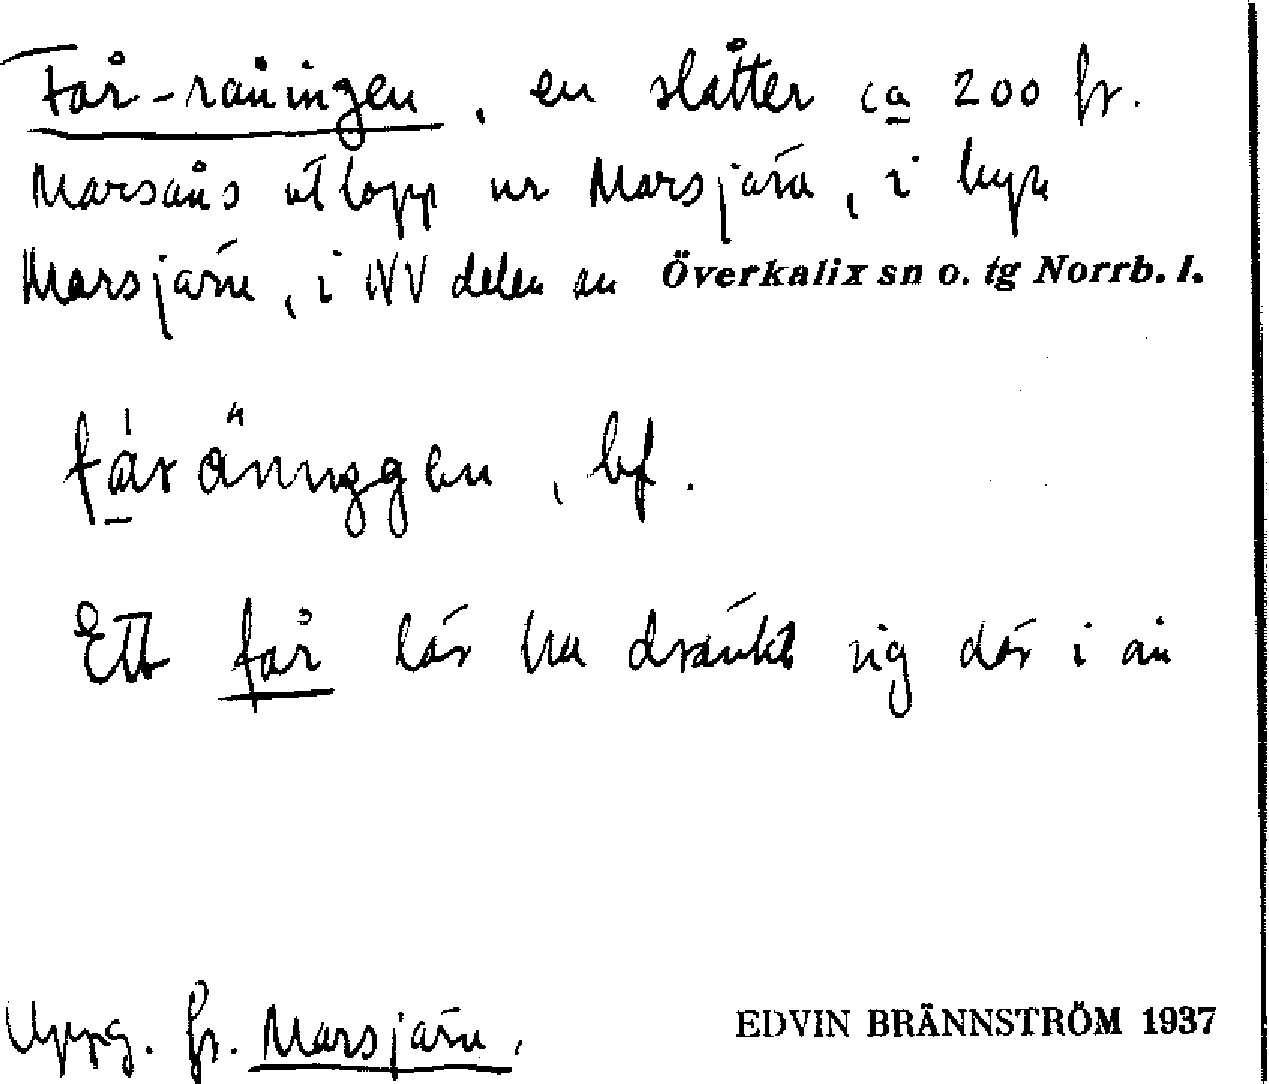 Får-råningen, en slåtter ca 200 fr.
Marsåns utlopp ur Marsjärv, i byn
Marsjärv, i NV delen av Överkalix sn o. tg Norrb. l.
fåråninggen, bf.
Ett får lär ha dränkt sig där i ån
Uppg. fr. Marsjärv.
EDVIN BRÄNNSTRÖM 1937